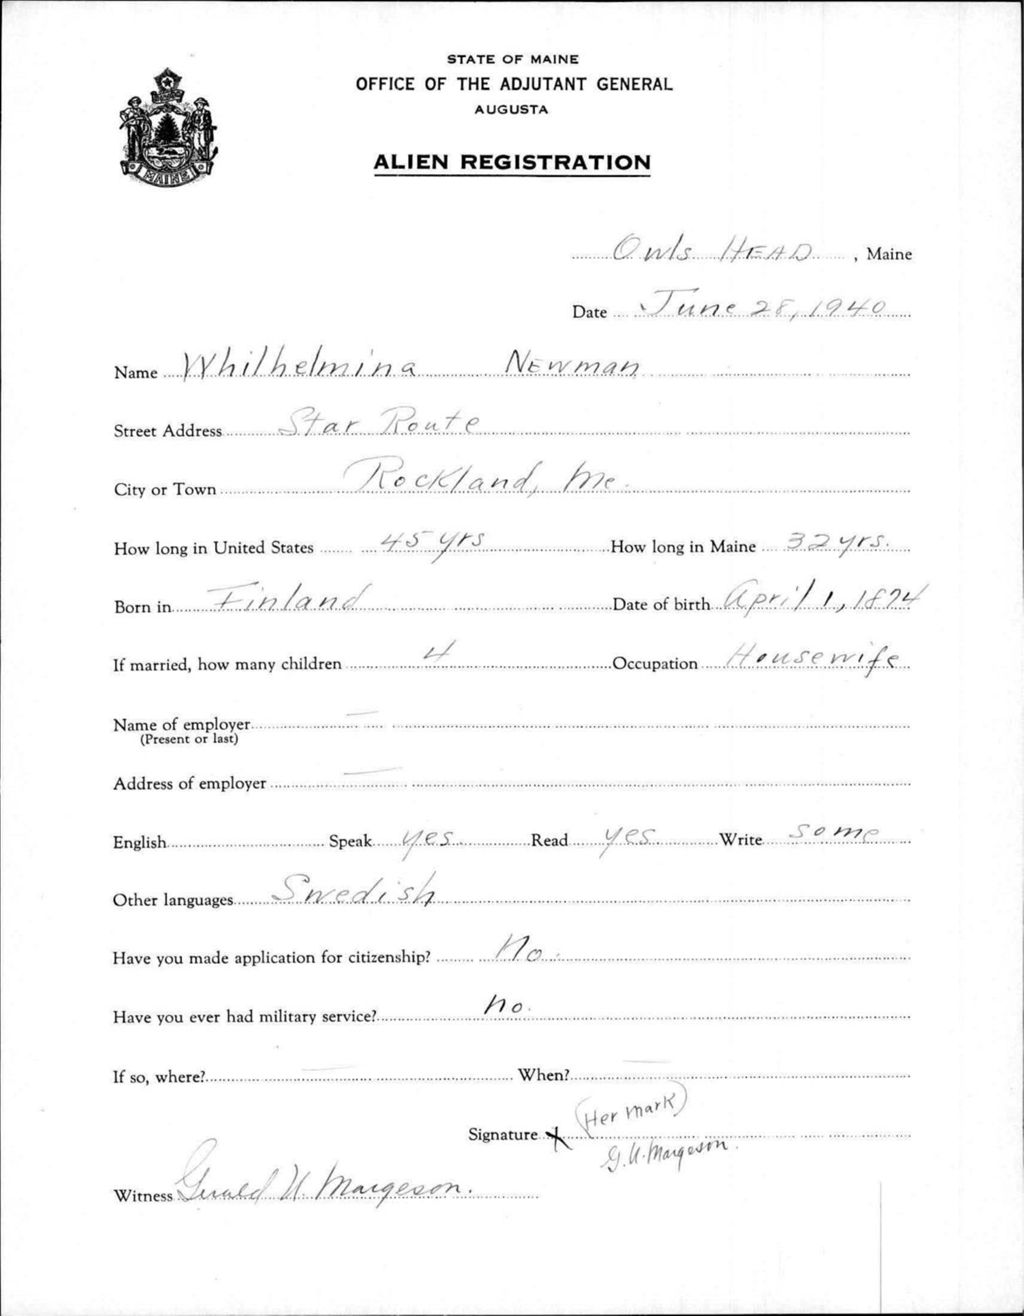 STATE OF MAINE
OFFICE OF THE ADJUTANT GENERAL
AUGUSTA
ALIEN REGISTRATION
MAINE
Owls HEAD, Maine
Date June 28, 1940
Name Whilhelmina Newman
Street Address Star Route
City or Town Rockland, Me.
How long in United States 45 yrs How long in Maine 32 yrs.
Born in Finland Date of birth April 1, 1874
If married, how many children 4 Occupation Housewife
Name of employer —
(Present or last)
Address of employer —
English Speak yes Read yes Write some
Other languages Swedish
Have you made application for citizenship? No.
Have you ever had military service? no.
If so, where? — When? —
(Her mark)
Signature X
G. U. Margeson.
Witness Gerald U. Margeson.